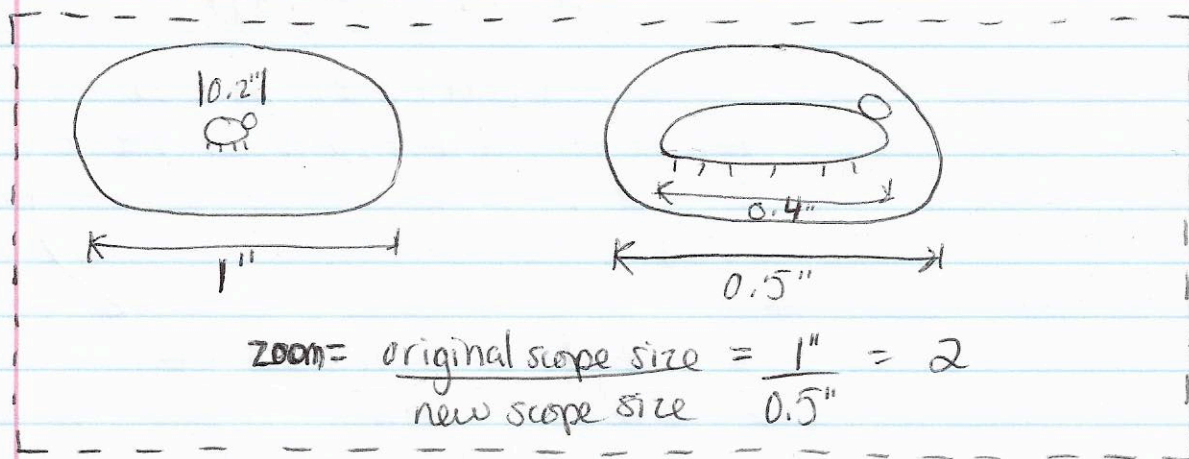 |0.2"|
0.4"
1"
0.5"
zoom = original scope size = 1" = 2
new scope size 0.5"